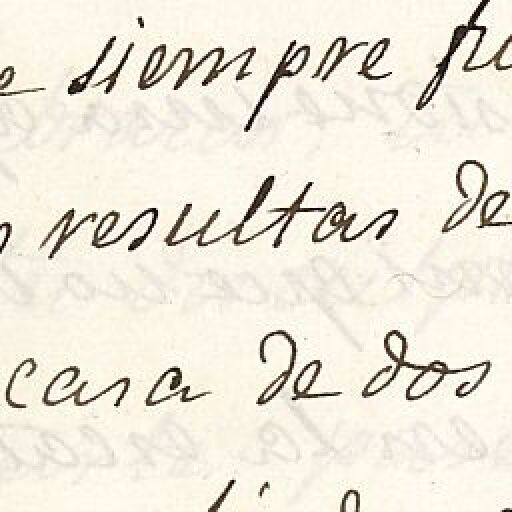 e siempre fu
resultas de
casa de dos